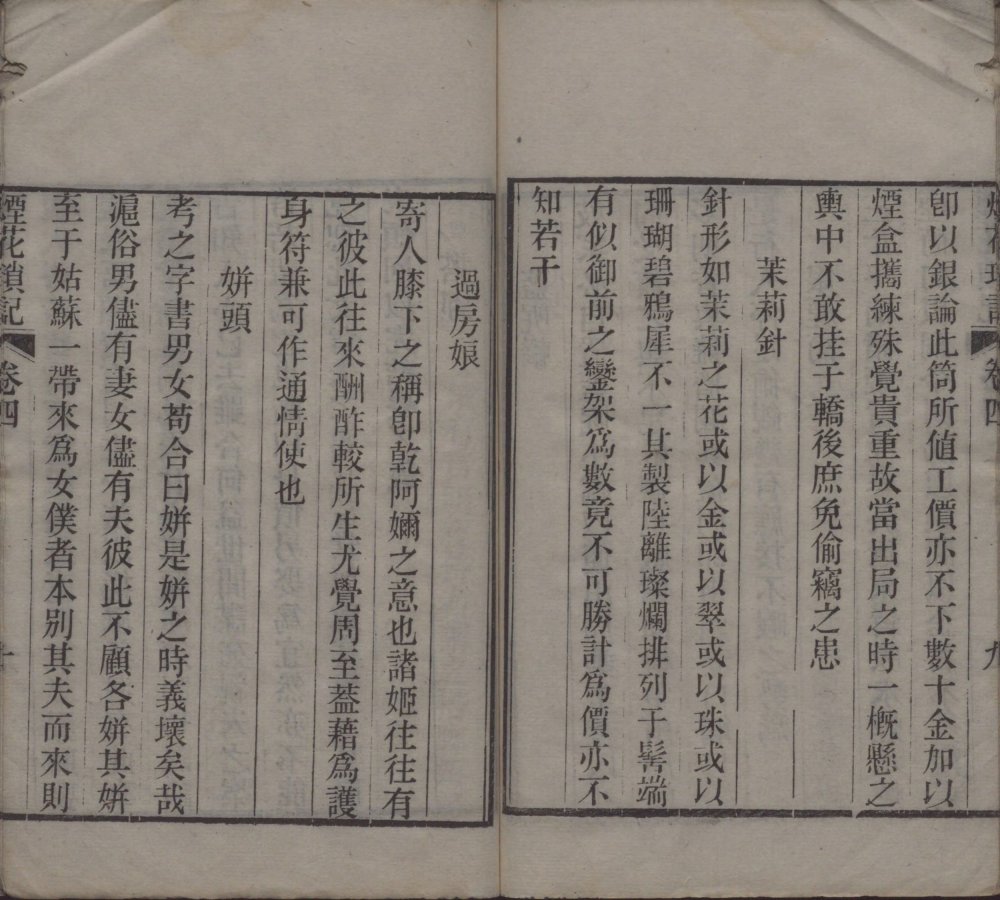 煙花瑣記
卷四
九
卽以銀論此筒所値工價亦不下數十金加以
煙盒攜練殊覺貴重故當出局之時一槪懸之
輿中不敢挂于轎後庶免偷竊之患
茉莉針
針形如茉莉之花或以金或以翠或以珠或以
珊瑚碧鴉犀不一其製陸離璨爛排列于髩端
有似御前之鑾架爲數竟不可勝計爲價亦不
知若干
過房娘
寄人膝下之稱卽乾阿嬭之意也諸姬往往有
之彼此往來酬酢較所生尤覺周至葢藉爲護
身符兼可作通情使也
姘頭
考之字書男女苟合曰姘是姘之時義壞矣哉
滬俗男儘有妻女儘有夫彼此不顧各姘其姘
至于姑蘇一帶來爲女僕者本別其夫而來則
煙花瑣記
卷四
十